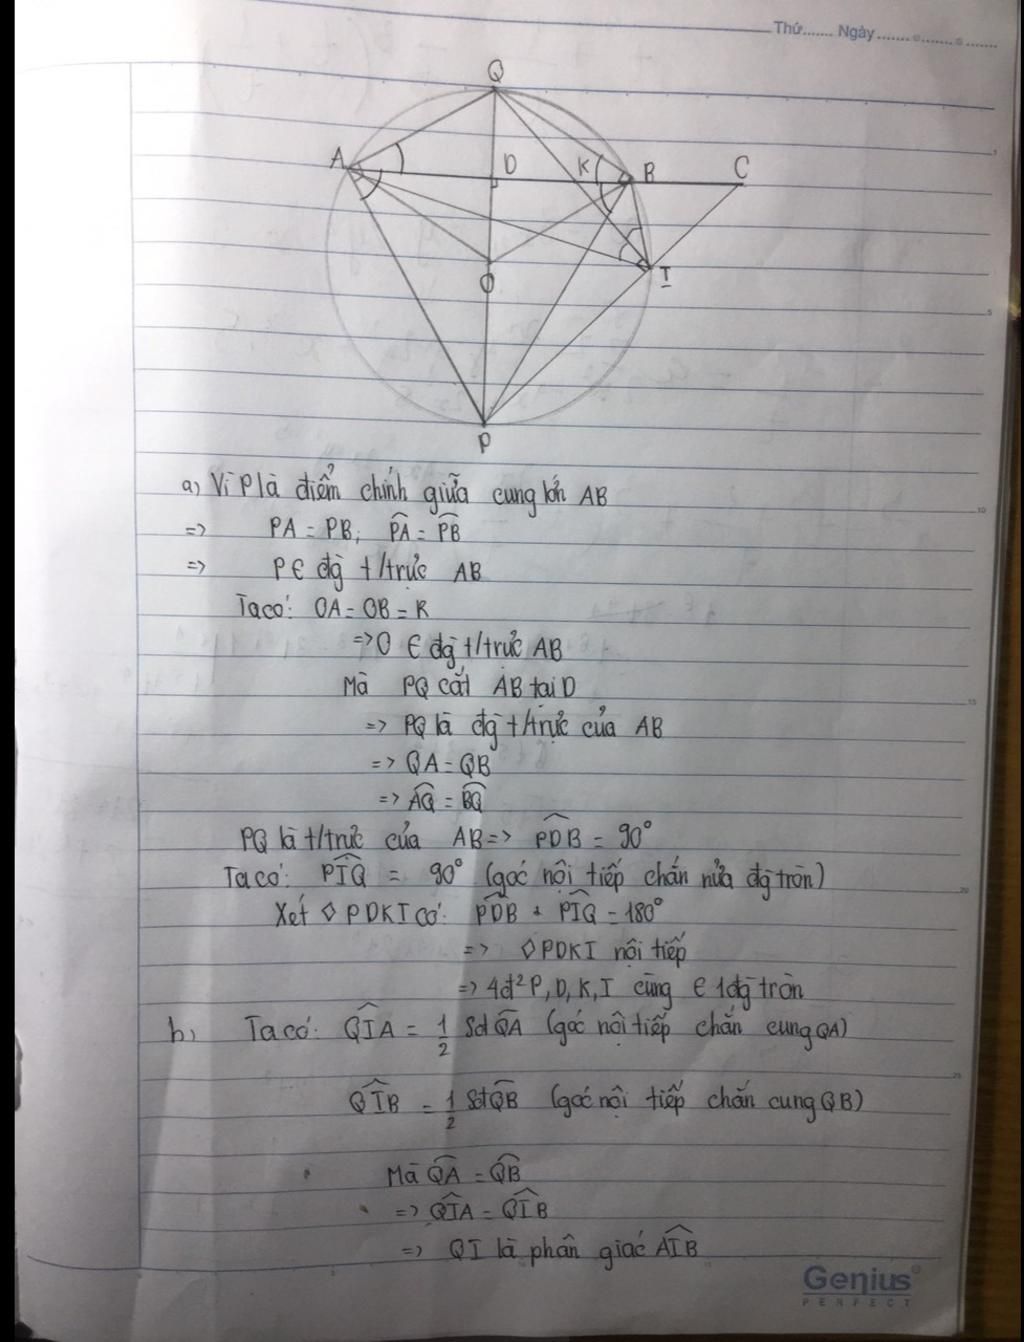 Thứ....... Ngày ....................
Q
A
D
K
B
C
O
I
P
a) Vì P là điểm chính giữa cung lớn AB
=> PA = PB; PA = PB
=> P∈ đg t/trực AB
Ta có: OA = OB = R
=> O ∈ đg t/trực AB
Mà PQ cắt AB tại D
=> PQ là đg t/trực của AB
=> QA = QB
=> AQ = BQ
PQ là t/trực của AB => PDB = 90°
Ta có: PIQ = 90° (góc nội tiếp chắn nửa đg tròn)
Xét ◊ PDKI có: PDB + PIQ = 180°
=> ◊ PDKI nội tiếp
=> 4đ² P, D, K, I cùng ∈ 1 đg tròn
b) Ta có: QIA = 1/2 Sđ QA (góc nội tiếp chắn cung QA)
QIB = 1/2 Sđ QB (góc nội tiếp chắn cung QB)
Mà QA = QB
=> QIA = QIB
=> QI là phân giác AIB
Genius
PERFECT